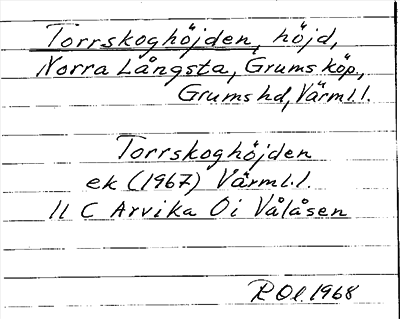 Torrskoghöjden, höjd,
Norra Långsta, Grums köp.,
Grums hd, Värml.l.
Torrskoghöjden
ek (1967) Värml.l.
11 C Arvika Oi Vålåsen
R Ol. 1968